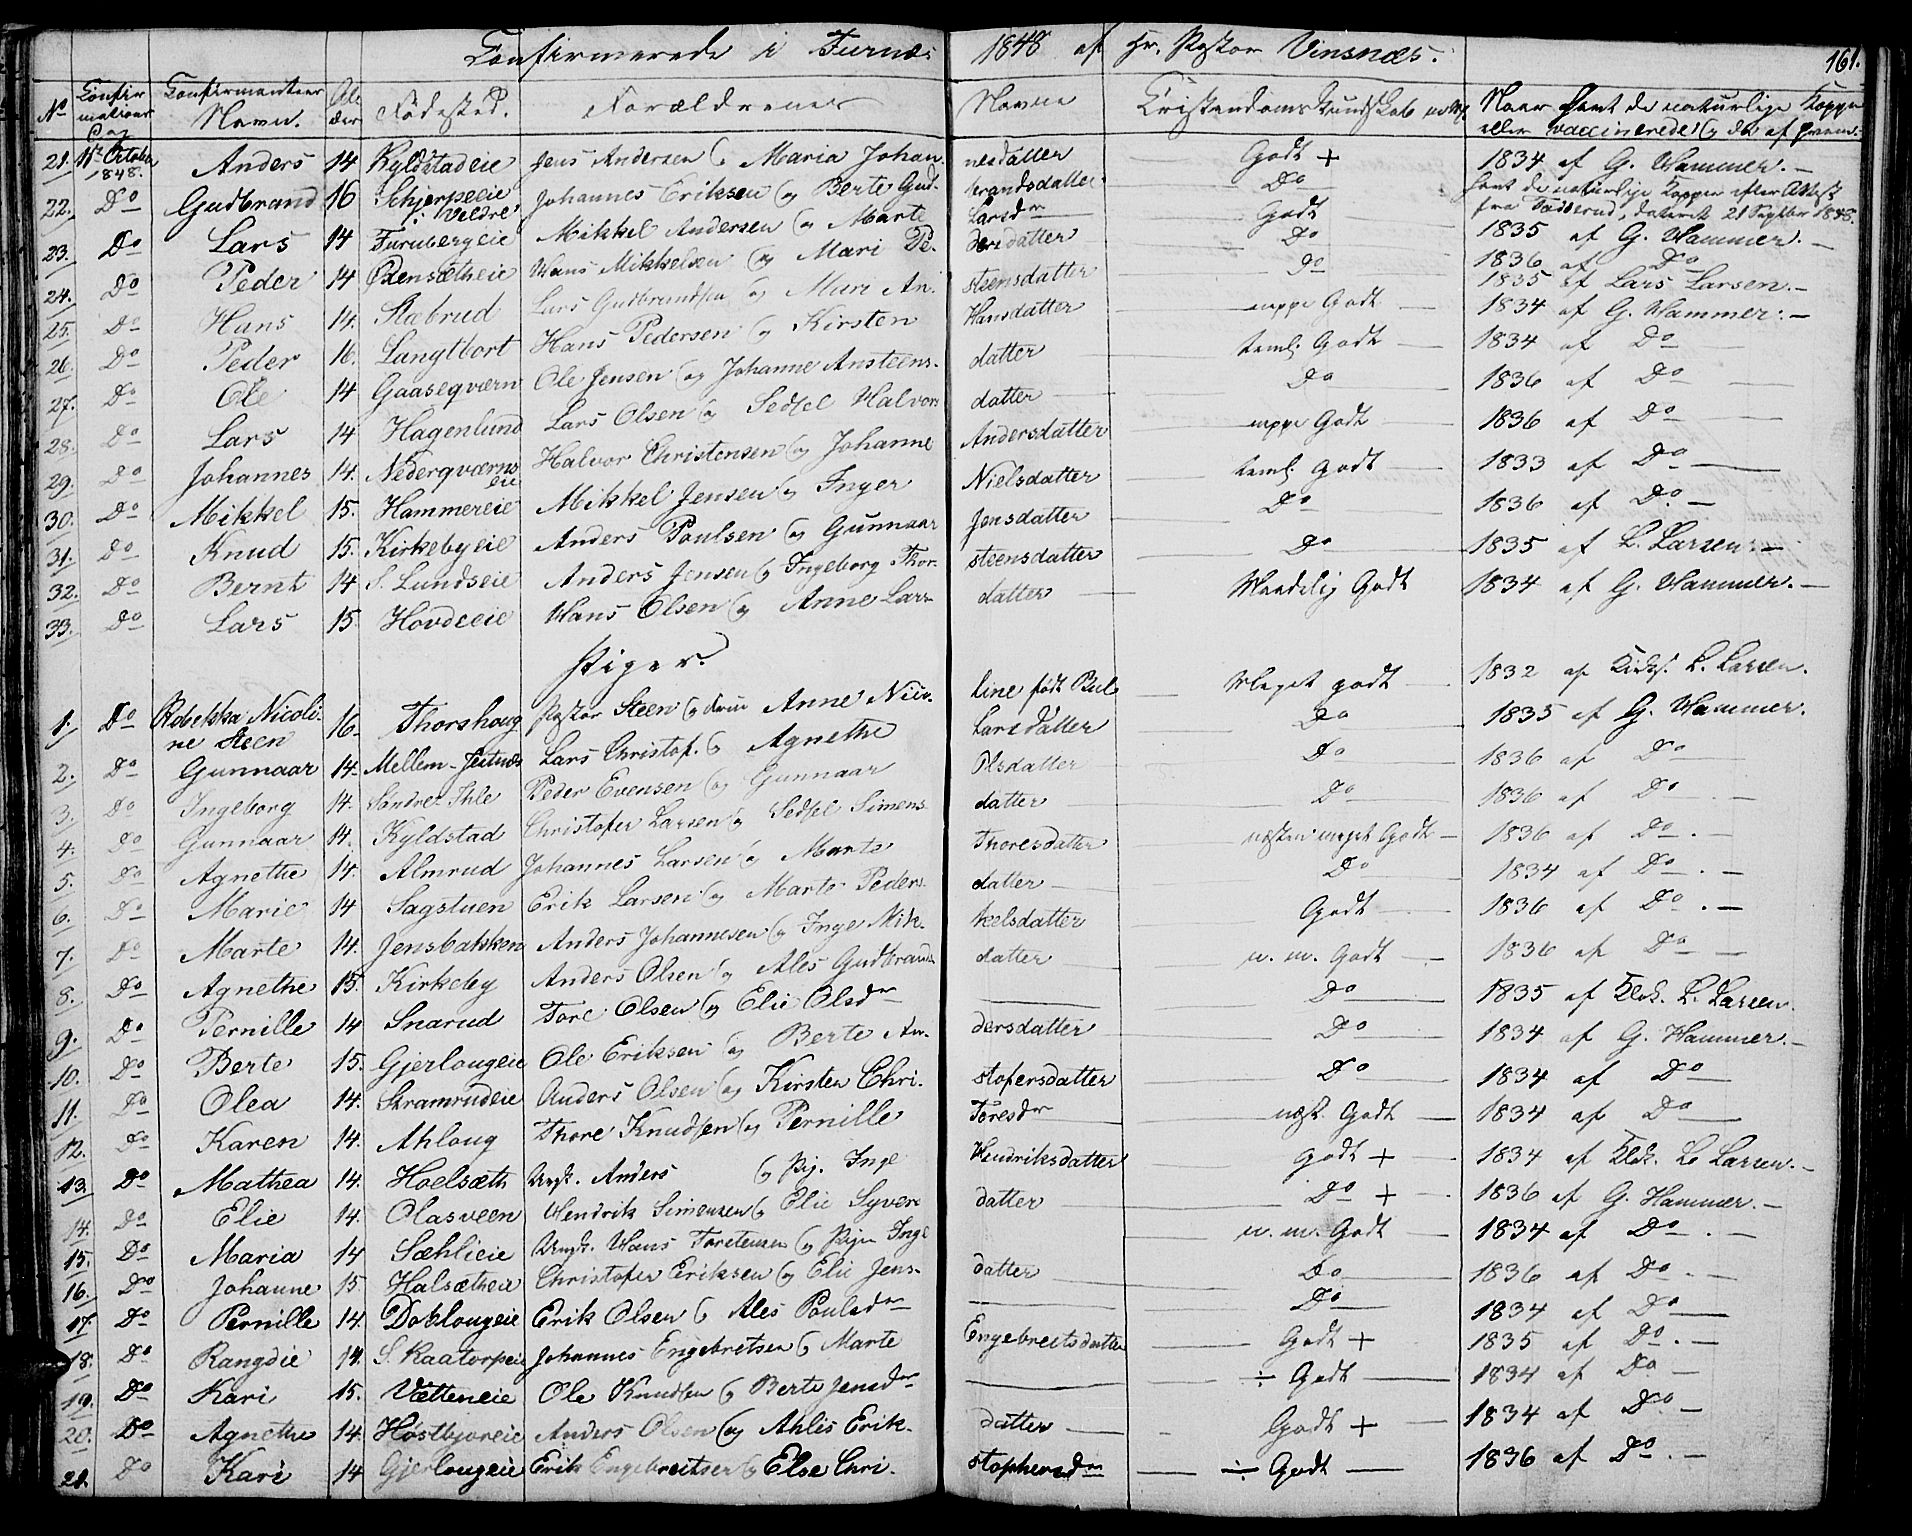 Confirmerede i Furnæs 1848 af Hr. Pastor Vinsnæs. 161.
No Confirmations Dag Confirmanternes Navn. Alder Fødested. Forældrenes Navne Kristendoms Kundskab Naar havt de naturlige Kopper eller vaccinerede og da af hvem.
21. 11te October 1848. Anders 14 Kyldstadeie Jens Andersen og Maria Johannesdatter Godt + 1834 af G. Hammer. –
22. Do Gudbrand 16 Schjerpeeie i Veldre Johannes Eriksen og Berte Gudbrandsdatter Do havt de naturlige Kopper efter Attest fra dateret 21 September 1848.
23. Do Lars 14 Furubergeie Mikkel Andersen og Marte Larsdr Godt 1835 af G. Hammer. –
24. Do Peder 14 Øensætheie Hans Mikkelsen og Mari Pedersdatter Do 1836 af Do
25. Do Hans 14. Stabrud Lars Gudbrandsen og Mari Ansteensdatter Do 1835 af Lars Larsen. –
26. Do Peder 16. Langtbort Hans Pedersen og Kirsten Hansdatter neppe Godt 1834 af G. Hammer. –
27. Do Ole 14 Gaaseqværn Ole Jensen og Johanne Ansteensdatter temli. Godt 1834 af Do
28. Do Lars 14 Hagenlund Lars Olsen og Sedsel Halvorsdatter Do 1836 af Do
29. Do Johannes 14. Nederqværns eie Halvor Christensen og Johanne Andersdatter neppe Godt 1836 af Do
30. Do Mikkel 15. Hammereie Mikkel Jensen og Inger Nielsdatter temli. Godt 1833 af Do
31. Do Knud 15. Kirkebyeie Anders Poulsen og Gunnaar Jensdatter Do 1836 af Do –
32. Do Bernt 14 S. Lundseie Anders Jensen og Ingeborg Thorsteensdatter Do 1835 af L. Larsen. –
33. Do Lars 15. Hovdeeie Hans Olsen og Anne Larsdatter Maadelig Godt 1834 af G. Hammer. –
Piger.
1. Do Rebekka Nicoline Steen 16. Thorshoug Pastor Steen og Anne Nicoline født Meget godt 1832 af L. Larsen.
2. Do Gunnaar 14. Mellem-Jestnæs Lars Christof. og Agnethe Larsdatter Do 1835 af G. Hammer.
3. Do Ingeborg 14. Sandvei Ihle Peder Evensen og Gunnaar Olsdatter Do 1836 af Do
4. Do Gunnaar 14. Kyldstad Christofer Larsen og Sedsel Simensdatter Do 1836 af Do
5. Do Agnethe 14. Almrud Johannes Larsen og Marte Thoresdatter næsten meget Godt 1836 af Do. –
6. Do Marie 14 Sagstuen Erik Larsen og Marte Pedersdatter Do 1834 af Do. –
7. Do Marte 14. Jensbakken Anders Johannesen og Inge Mikkelsdatter Godt 1836 af Do. –
8. Do Agnethe 15. Kirkeby Anders Olsen og Ales Gudbrandsdatter n. m. Godt 1836 af Do –
9. Do Pernille 14 Snarud Tore Olsen og Elie Olsdr Do 1835 af Klok. L. Larsen.
10. Do Berte 15. Gjerlougeie Ole Eriksen og Berte Andersdatter Do 1834 af G. Hammer. –
11. Do Olea 14. Skramrudeie Anders Olsen og Kirsten Christofersdatter Do 1834 af Do
12. Do Karen 14. Ahloug Thore Knudsen og Pernille Toresdr næst Godt 1834 af Do
13. Do Mathea 14. Hoelsæth Ungk. Anders og Pi. Inge Hendriksdatter godt + 1834 af Klok. L. Larsen. –
14. Do Elie 14. Olasveen Hendrik Simensen og Elie Syversdatter Do + 1836 af G. Hammer. –
15. Do Maria 14 Sæhlieie Ungk. Hans Torstensen og Pigen Inge n. m. Godt 1834 af Do. –
16. Do Johanne 15. Halsætheie Christofer Eriksen og Elie Jensdatter Do 1836 af Do. –
17. Do Pernille 14. Doblougeie Erik Olsen og Ales Poulsdr Do 1834 af Do
18. Do Rangdie 14. S. Kaatorpeie Johannes Engebretsen og Marte Engebreitsdatter Godt + 1835 af Do. –
19. Do Kari 15. Vætteneie Ole Knudsen og Berte Jensdr ÷ Godt 1834 af Do –
20. Do Agnethe 14. Høstbjoreie Anders Olsen og Ahles Eriksdatter Godt + 1834 af Do –
21. Do Kari 14 Gjerlougeie Erik Engebreitsen og Else Christophersdr ÷ Godt 1836 af Do. –